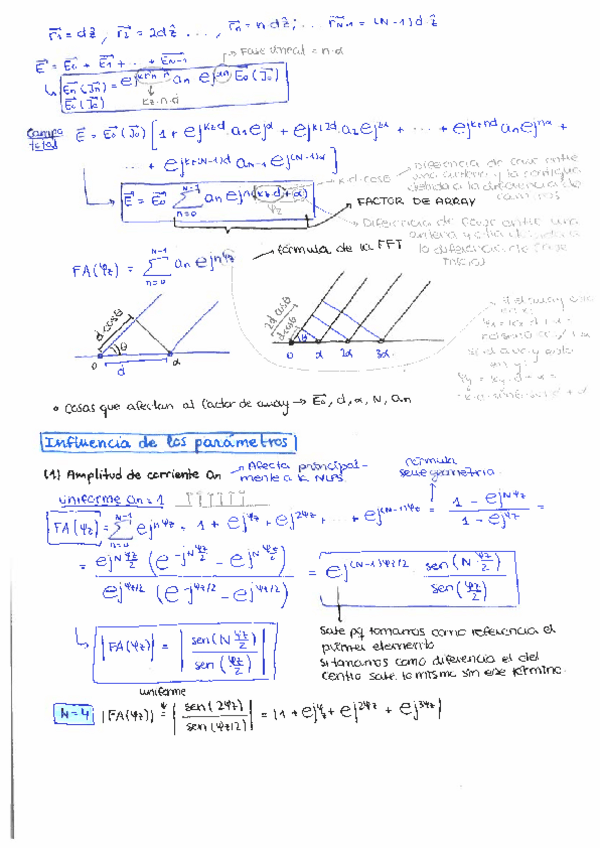 r⃗1 = dẑ, r⃗2 = 2dẑ ..., r⃗n = n·dẑ; ... r⃗N-1 = (N-1)d·ẑ
E⃗ = E⃗0 + E⃗1 + ... + E⃗N-1
Fase lineal = n·α
E⃗n(J⃗n) = e^{jkz·n·d} an e^{jαn} E⃗0(J⃗0)
E⃗0(J⃗0)
kz·n·d
Campo total E⃗ = E⃗0(J⃗0) [1 + e^{jkzd} a1 e^{jα} + e^{jkz2d} a2 e^{j2α} + ... + e^{jkznd} an e^{jnα} +
... + e^{jkz(N-1)d} aN-1 e^{j(N-1)α}]
Diferencia de fase entre
una antena y la contigua
debida a la diferencia de
caminos
k·d·cosθ
E⃗ = E⃗0 Σ_{n=0}^{N-1} an e^{jn(kz·d+α)}
Ψz
FACTOR DE ARRAY
Diferencia de fase entre una
antena y otra debida a
la diferencia de fase
inicial
FA(Ψz) = Σ_{n=0}^{N-1} an e^{jnΨz}
fórmula de la FFT
d cosθ
θ
0 d α
2d cosθ
d cosθ
θ
0 α 2α 3α
Si el array está
∘ Cosas que afectan al factor de array → E⃗0, d, α, N, an
Influencia de los parámetros
(1) Amplitud de corriente an → Afecta principal-
mente a la NLPS
uniforme an = 1
fórmula
serie geométrica
FA(Ψz) = Σ_{n=0}^{N-1} e^{jnΨz} = 1 + e^{jΨz} + e^{j2Ψz} + ... + e^{j(N-1)Ψz} = (1 - e^{jNΨz}) / (1 - e^{jΨz}) =
= e^{jNΨz/2} (e^{-jNΨz/2} - e^{jNΨz/2}) / e^{jΨz/2} (e^{-jΨz/2} - e^{jΨz/2}) = e^{j(N-1)Ψz/2} · sen(NΨz/2) / sen(Ψz/2)
Sale pq tomamos como referencia el
primer elemento
Si tomamos como diferencia el del
centro sale lo mismo sin ese término.
|FA(Ψz)| = |sen(NΨz/2) / sen(Ψz/2)|
uniforme
N=4 |FA(Ψz)| = |sen(2Ψz) / sen(Ψz/2)| = |1 + e^{jΨz} + e^{j2Ψz} + e^{j3Ψz}|